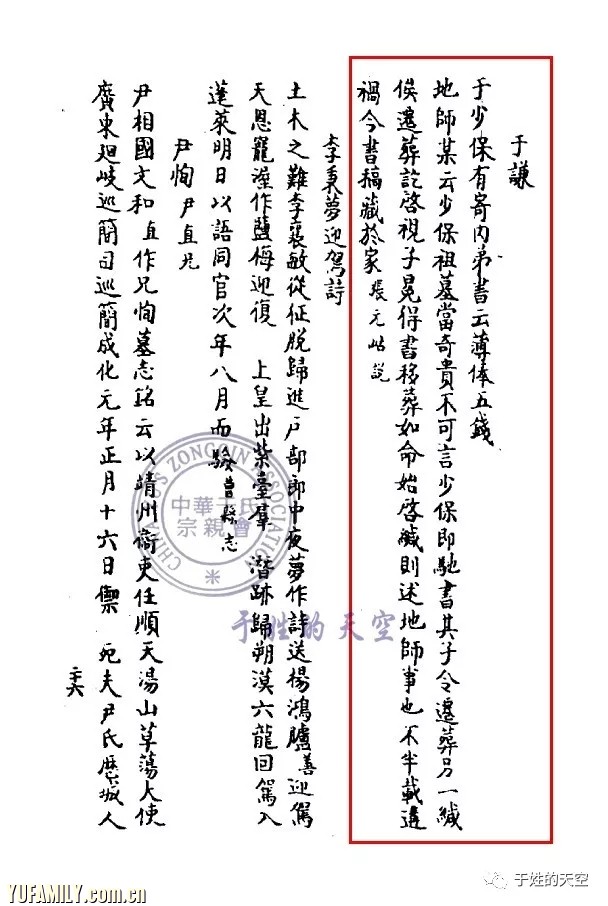 于謙
于少保有寄內弟書云薄俸五錢
地師某云少保祖墓當奇貴不可言少保即馳書其子令遷葬另一緘
俟遷葬訖啓視子冕得書移葬如命始啓緘則述地師事也不半載遘
禍今書稿藏於家張元岵說
李秉夢迎駕詩
土木之難李襄敏從征脫歸進戶部郎中夜夢作詩送楊鴻臚善迎駕
天恩寵渥作鹽梅迎復 上皇出紫臺羣 潛跡歸朔漠六龍回駕入
蓬萊明日以語同官次年八月而驗曹縣志
尹恂尹直兄
尹相國文和直作兄恂墓志銘云以靖州衞吏任順天湯山草蕩大使
廣東廻岐巡簡曰巡簡成化元年正月十六日禦 宛夫尹氏歷城人
二十六
CHINA YU'S ZONGQIN ASSOCIATION
中華于氏
宗親會
于姓的天空
YUFAMILY.com.cn
于姓的天空